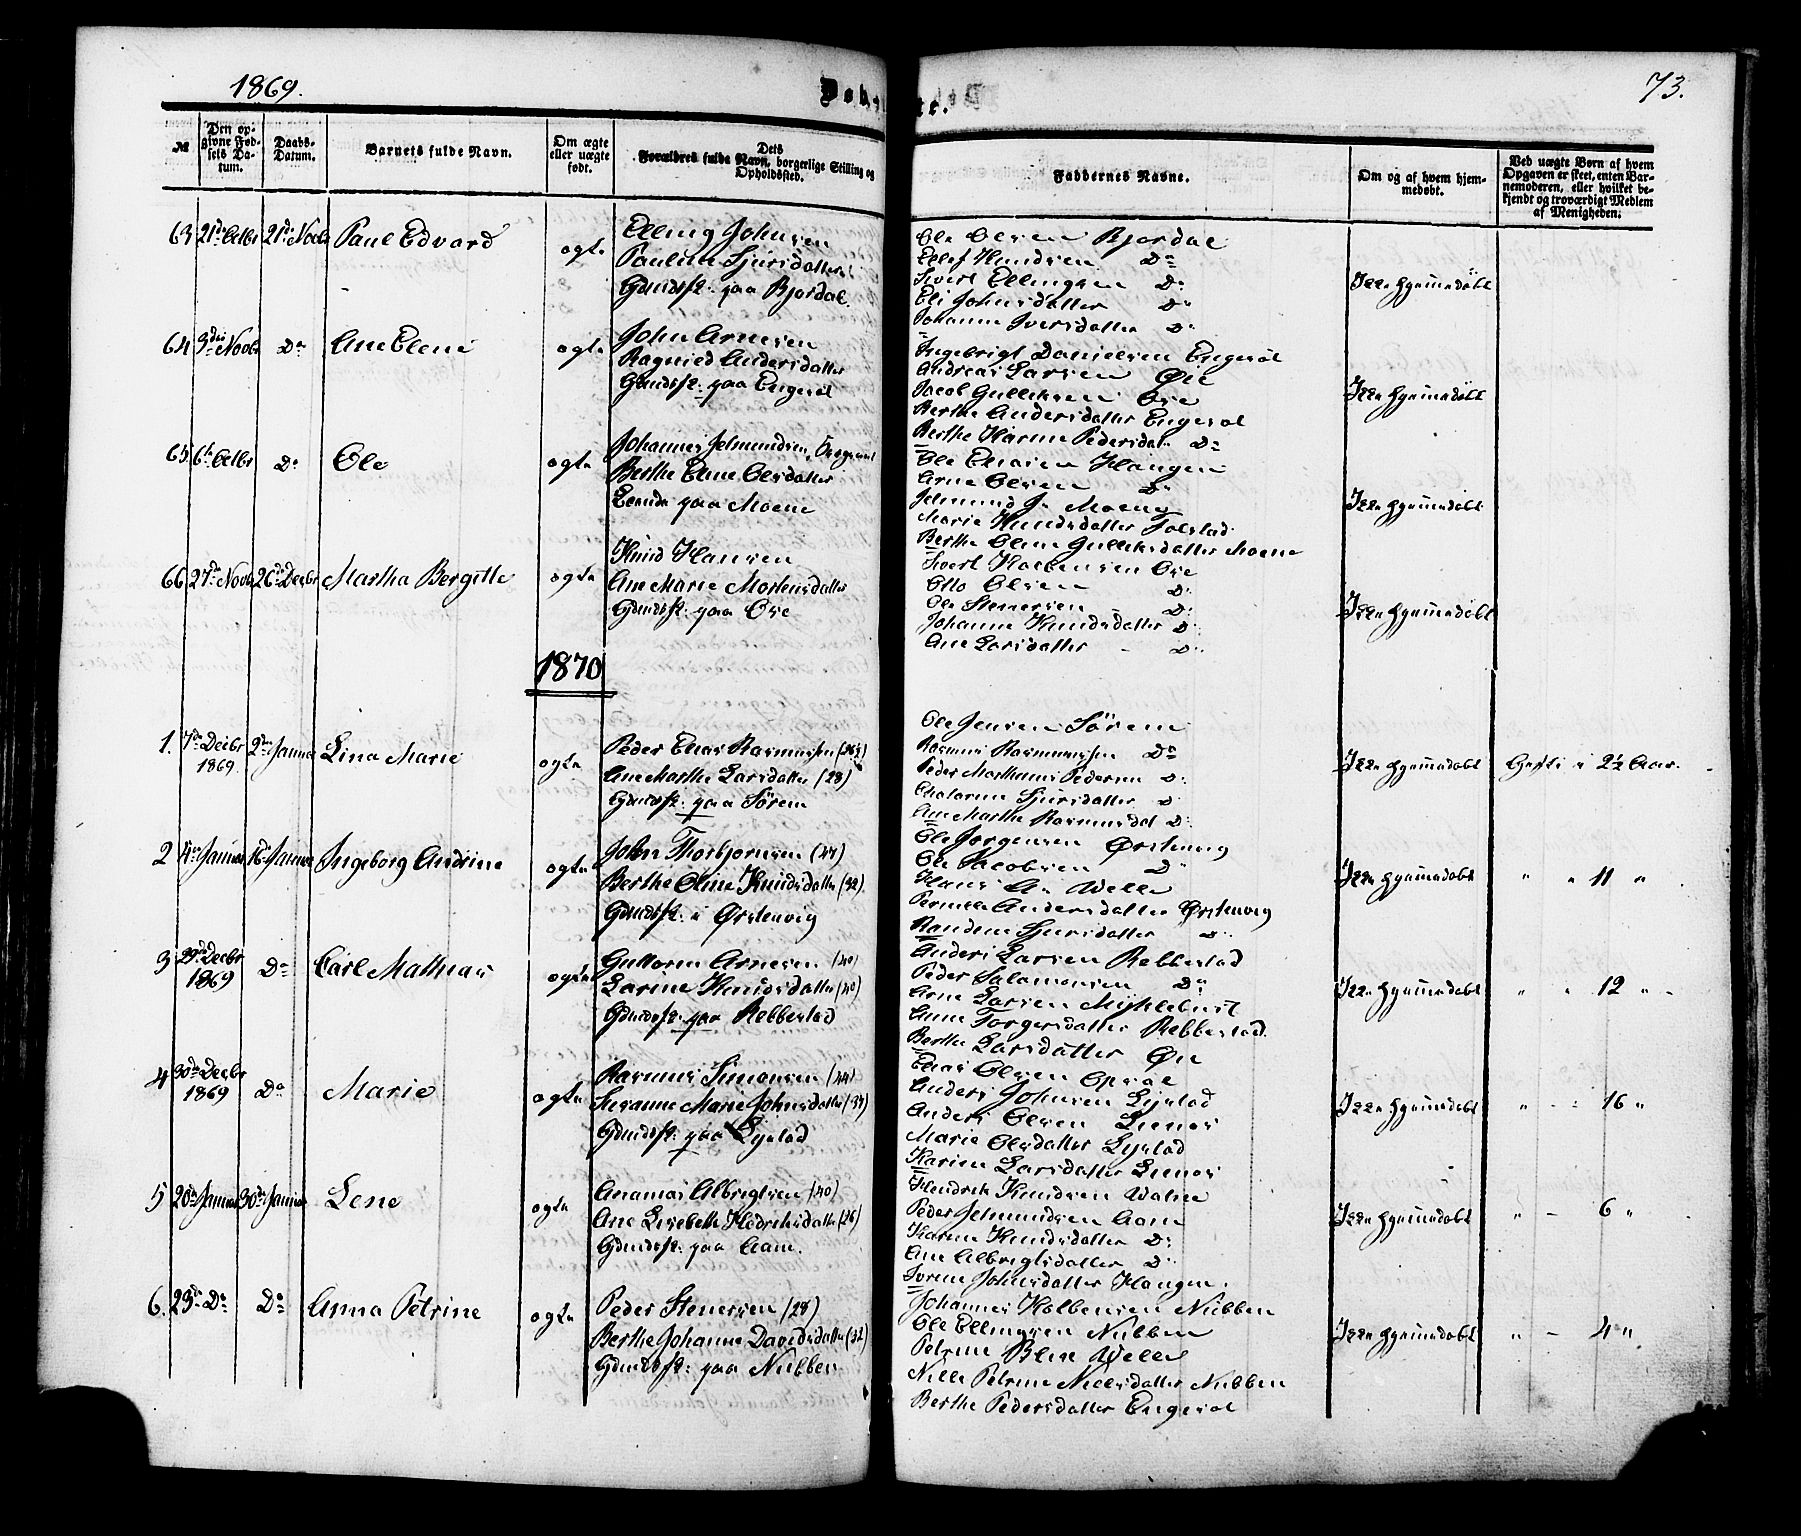 1869.
Døbte.
73.
№
Den opgivne Fødsels Datum.
Daabs-Datum.
Barnets fulde Navn.
Om ægte eller uægte født.
Forældres fulde Navn, Dets borgerlige Stilling og Opholdssted.
Faddernes Navne.
Om og af hvem hjemmedøbt.
Ved uægte Børn af hvem Opgaven er skeet, enten Barnemoderen, eller hvilket bekjendt og troværdigt Medlem af Menigheden.
63 21de Octbr 21de Novbr Paul Edvard ægte
Elling Johnsen
Pauline Sjursdatter
Gdmdsf: paa Bjørdal.
Ole Olsen Bjørdal
Ellef Knudsen Do
Sivert Ellingsen Do
Eli Johnsdatter Do
Johanne Iversdatter Do
Ikke hjemmedøbt
64 3die Novbr Do Ane Elene ægte
John Arnesen
Ragnild Andersdatter
Gdmdsf: paa Engesøl
Ingebrigt Danielsen Engesøl
Andreas Larsen Øie
Jacob Gulliksen Øie
Berthe Andersdatter Engesøl
Berthe Karine Pedersdat: Do
Ikke hjemmedøbt
65 6te Octbr Do Ole ægte
Johannes Jelmundsen,
Berthe Elene Olsdatter
paa Moene
Ole Eliasen Haugen
Arne Olsen Do
Jelmund J. Moene
Marie Knudsdatter Folstad
Berthe Oline Gulliksdatter Moene
Ikke hjemmedøbt
66 27de Novbr 26de Decbr Martha Bergitte ægte
Knud Hansen
Ane Marie Mortensdatter
Gdmdsf: paa Øie
Sivert Knudsen Øie
Otto Olsen Do
Ole Stenersen Do
Johanne Knudsdatter Do
Ane Larsdatter Do
Ikke hjemmedøbt
1870
1. 7de Decbr 1869. 2den Januar Lina Marie ægte
Peder Elias Rasmussen
Ane Marthe Larsdatter (28)
Gdmdsf: paa Sørem
Ole Jensen Sørem
Rasmus Rasmussen Do
Peder Mathias Pedersen Do
Cathrine Sjursdatter Do
Ane Marthe Rasmusdat Do
Ikke hjemmedøbt
Gifte i 2½ Aar.
2 4de Januar 16de Januar Ingeborg Andrine ægte
John Thorbjørnsen (47)
Berthe Oline Knudsdatter (32).
Gdmdsf: i Ørstenvig
Ole Jørgensen Ørstenvig
Ole Jacobsen Do
Hans A. Welle
Pernille Andersdatter Ørstenvig
Randine Sjursdatter Do
Ikke hjemmedøbt
" " 11 "
3 29de Decbr 1869 Do Carl Mathias ægte
Guttorm Arnesen (40)
Larine Knudsdatter (40)
Gdmdsf: paa Rebbestad
Anders Larsen Rebbestad
Peder Salamonsen Do
Arne Larsen Myklebust
Anne Torgersdatter Rebbestad.
Berthe Larsdatter Øie
Ikke hjemmedøbt
" " 12 "
4 30de Decbr 1869 Do Marie ægte
Rasmus Simonsen (44)
Susanne Marie Johnsdatter
Gdmdsf: paa Lystad
Elias Olsen Opsal
Anders Johnsen Lystad
Anders Olsen
Marie Olsdatter Lystad
Karen Larsdatter
Ikke hjemmedøbt
" " 16 "
5 20de Januar 30de Januar Lene ægte
Ananias Albrigtsen (40)
Ane Lisebeth Hedriksdatter (26)
Gdmdsf: paa Aam.
Hendrik Knudsen Watne
Peder Jelmundsen Aam
Karen Knudsdatter Do
Ane Albrigtsdatter Do
Sirene Johnsdatter Haugen.
Ikke hjemmedøbt
" – 6 "
6. 23de Do Do Anna Petrine ægte
Peder Stenersen (28)
Berthe Johanne Davidsdatter (32)
Gdmdsf: paa Nubben
Johannes Kolbensen Nubben
Ole Ellingsen Nubben
Petrine Welle
Nille Petrine Nielsdatter Nubben
Berthe Pedersdatter Engesøl
Ikke hjemmedøbt
" – 4 "